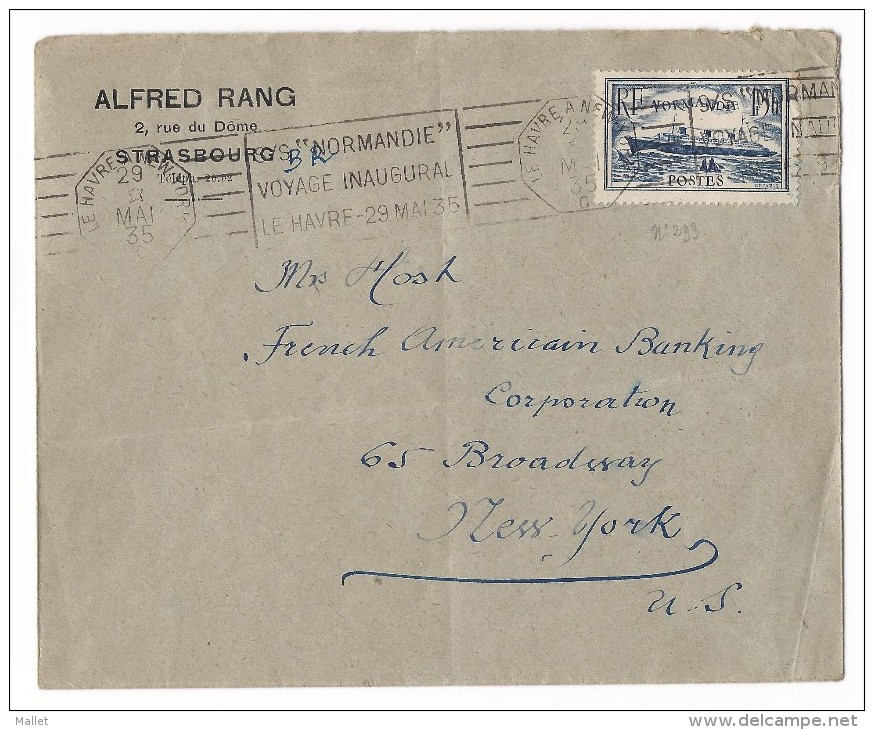 ALFRED RANG
2, rue du Dôme
STRASBOURG BR
Téléph. 26.02
LE HAVRE A NEW YORK
29
MAI
35
S/S "NORMANDIE"
VOYAGE INAUGURAL
LE HAVRE - 29 MAI 35
LE HAVRE A NEW
29
MAI
35
RF NORMANDIE
POSTES
S/S "NORMAN
VOYAGE INAU
n° 299
Mrs Hosh
French Americain Banking
Corporation
65 Broadway
New-York
U.S.
Mallet
delcampe.net